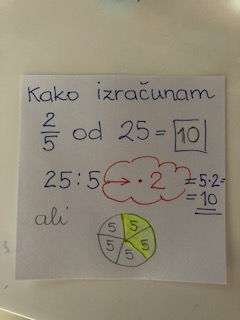 Kako izračunam
2/5 od 25 = 10
25 : 5 → · 2 = 5·2 =
= 10
ali
5 5 5 5 5